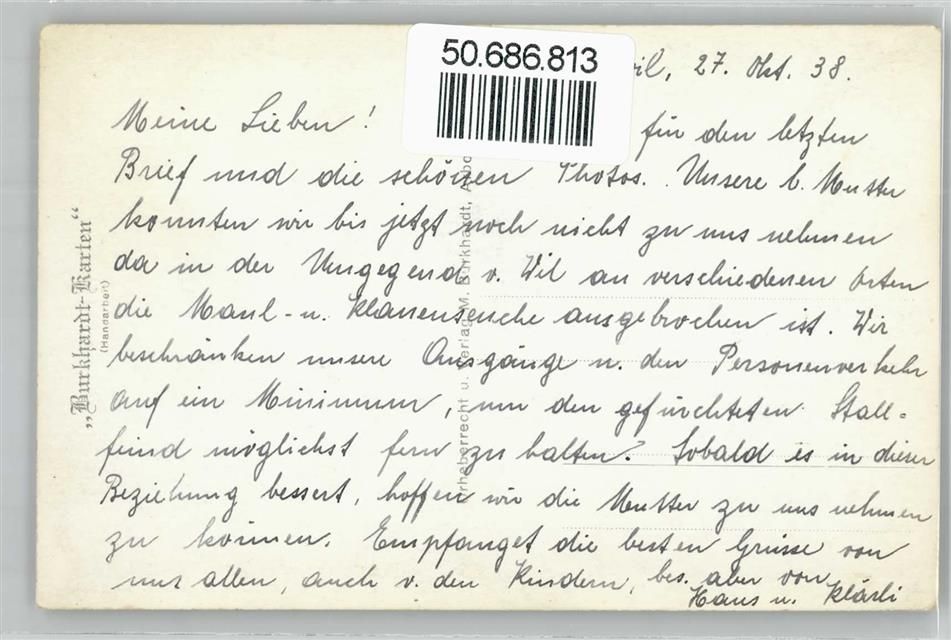 50.686.813
27. Okt. 38.
Meine Lieben!
für den letzten
Brief und die schönen Photos. Unsere l. Mutter
konnten wir bis jetzt noch nicht zu uns nehmen
da in der Umgegend v. Wil an verschiedenen Orten
die Maul- u. Klauenseuche ausgebrochen ist. Wir
beschränken unsere Ausgänge u. den Personenverkehr
auf ein Minimum, um den gefürchteten Stall-
feind möglichst fern zu halten. Sobald es in dieser
Beziehung bessert, hoffen wir die Mutter zu uns nehmen
zu können. Empfanget die besten Grüsse von
uns allen, auch v. den Kindern, bes. aber von
Hans u. Klärli
„Burkhardt-Karten“
(Handarbeit)
Urheberrecht u. Verlag M. Burkhardt,